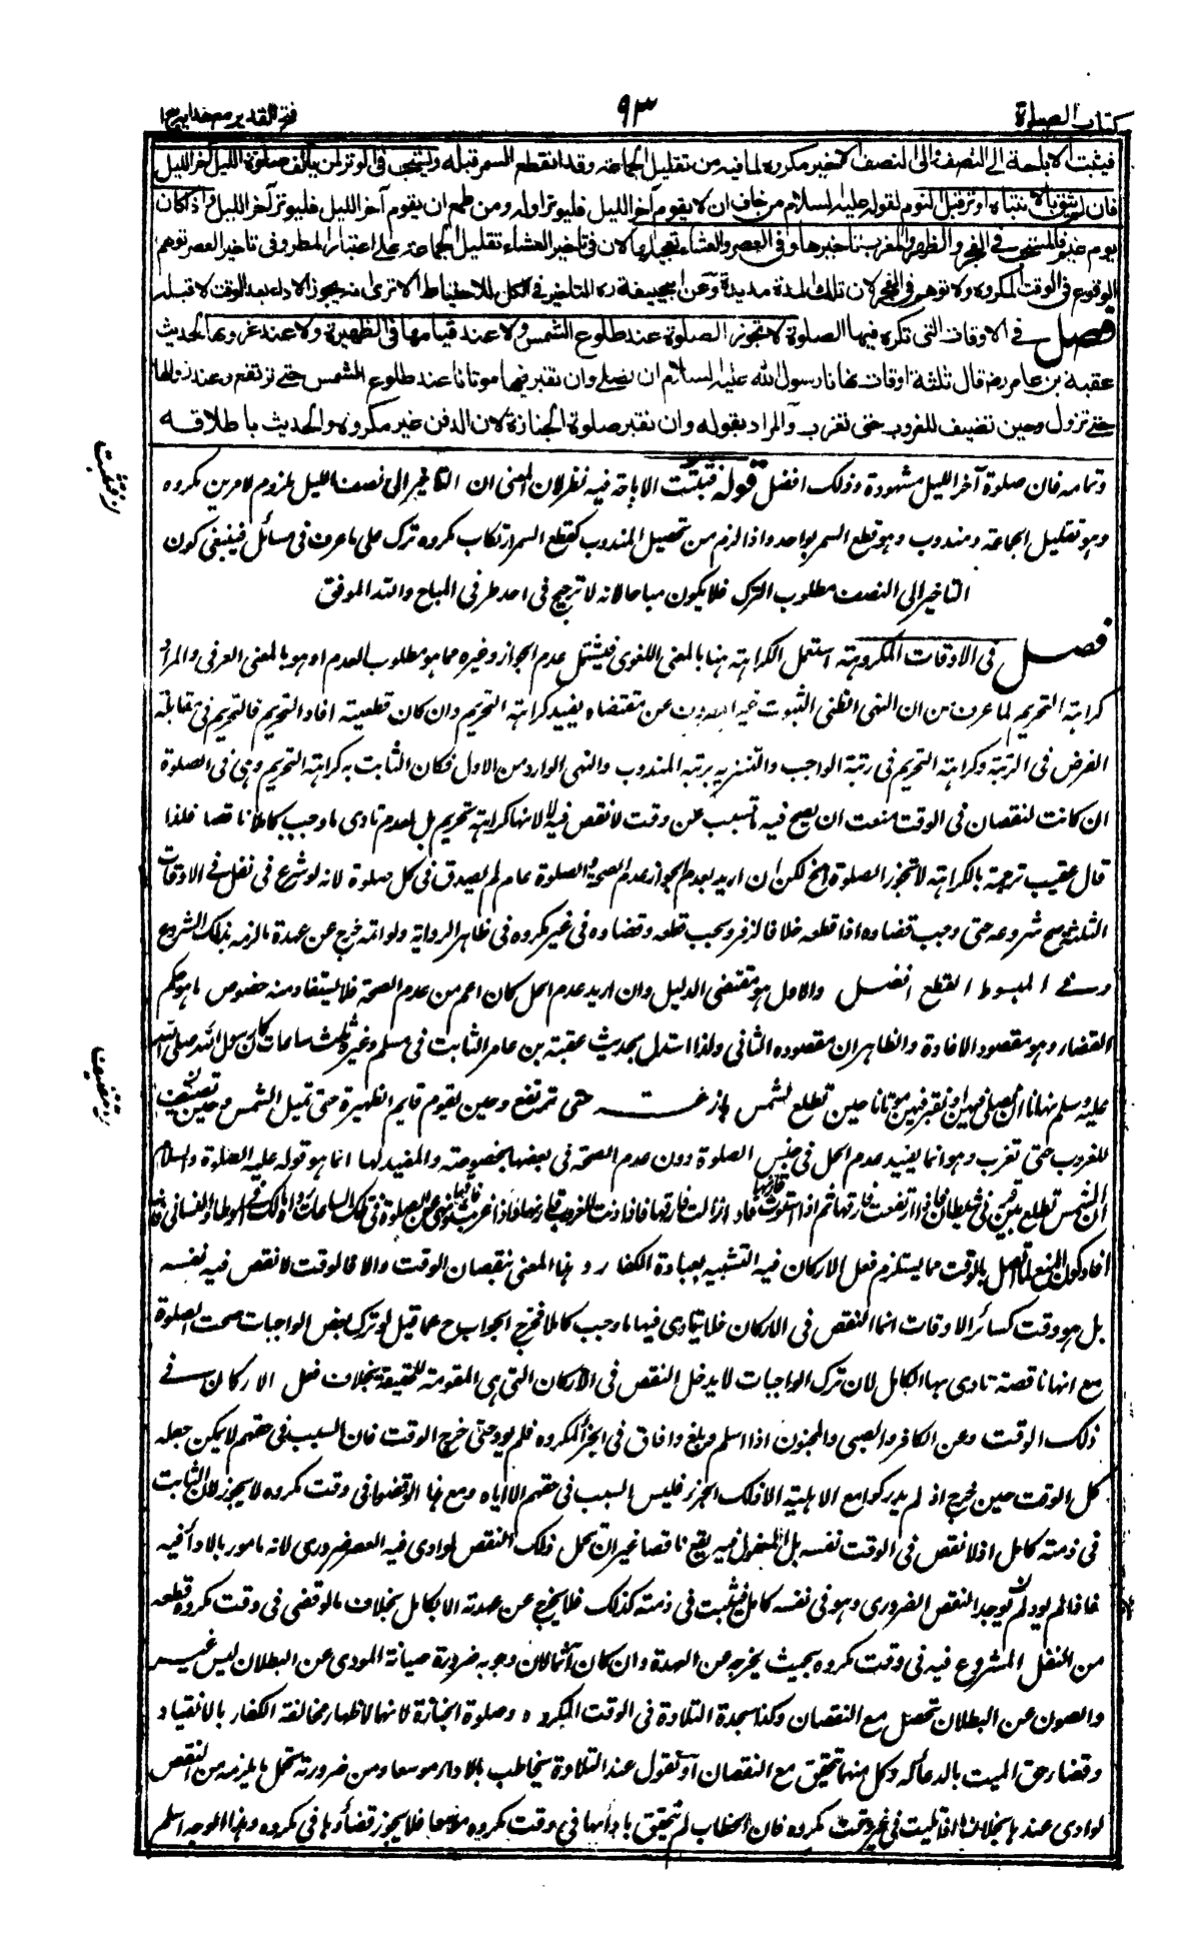 كتاب الصلوة
٩٣
فتح القدير مع هدايه ج ١
فيثبت الاباحة الى النصف والى النصف الاخير مكروه لما فيه من تقليل الجماعة وقد انقطع السمر قبله ويستحب فى الوتر لمن يألف صلوة الليل آخر الليل
فان لم يثق بالانتباه اوتر قبل النوم لقوله عليه السلام من خاف ان لا يقوم آخر الليل فليوتر اوله ومن طمع ان يقوم آخر الليل فليوتر آخر الليل واذا كان
يوم غيم فالمستحب فى الفجر والظهر والمغرب تاخيرها وفى العصر والعشاء تعجيلها لان فى تاخير العشاء تقليل الجماعة على اعتبار المطر وفى تاخير العصر توهم
الوقوع فى الوقت المكروه ولا توهم فى الفجر لان تلك المدة مديدة وعن ابى حنيفة ره التاخير فى الكل للاحتياط الا ترى انه يجوز الاداء بعد الوقت لا قبله
فصل فى الاوقات التى تكره فيها الصلوة لا تجوز الصلوة عند طلوع الشمس ولا عند قيامها فى الظهيرة ولا عند غروبها لحديث
عقبة بن عامر رضـ قال ثلثة اوقات نهانا رسول الله عليه السلام ان نصلى وان نقبر فيها موتانا عند طلوع الشمس حتى ترتفع وعند زوالها
حتى تزول وحين تضيف للغروب حتى تغرب والمراد بقوله وان نقبر صلوة الجنازة لان الدفن غير مكروه والحديث باطلاقه
وتمامه فان صلوة آخر الليل مشهودة وذلك افضل قوله فيثبت الاباحة فيه نظر لان المعنى ان التاخير الى نصف الليل يلزم لامرين مكروه
وهو تقليل الجماعة ومندوب وهو قطع السمر بواحد واذا لزم من تحصيل المندوب كقطع السمر ارتكاب مكروه ترك على ما عرف فى مسائل فينبغى كون
التاخير الى النصف مطلوب الترك فلا يكون مباحا لانه لا ترجيح فى احد طرفى المباح والله الموفق
فصل فى الاوقات المكروهة استعمل الكراهة هنا بالمعنى اللغوى فيشتمل عدم الجواز وغيره مما هو مطلوب العدم او هو بالمعنى العرفى والمراد
كراهة التحريم لما عرف من ان النهى الظنى الثبوت غير المصروف عن مقتضاه يفيد كراهة التحريم وان كان قطعيته افاد التحريم فالتحريم فى مقابلة
الفرض فى الرتبة وكراهة التحريم فى رتبة الواجب والتنزيه برتبة المندوب والنهى الوارد من الاول فكان الثابت به كراهة التحريم وهى فى الصلوة
ان كانت لنقصان فى الوقت منعت ان يصح فيه ما تسبب عن وقت لا نقص فيه لا لانها كراهة تحريم بل لعدم تادى ما وجب كاملا ناقصا فلذا
قال عقيب ترجمة بالكراهة لا تجوز الصلوة الخ لكن ان اريد بعدم الجواز عدم الصحة والصلوة عام لم يصدق فى كل صلوة لانه لو شرع فى نفل فى الاوقات
الثلثة صح شروعه حتى وجب قضاءه اذا قطعه خلافا لزفر ويجب قطعه وقضاءه فى غير مكروه فى ظاهر الرواية ولو اتمه خرج عن عهدة ما لزمه بذلك الشروع
وفى المبسوط القطع افضل والاول هو مقتضى الدليل وان اريد عدم الحل كان اعم من عدم الصحة فلا يستفاد منه خصوص ما هو حكم
القضاء وهو مقصود الافادة والظاهر ان مقصوده الثانى ولذا استدل بحديث عقبة بن عامر الثابت فى مسلم وغيره ثلث ساعات كان رسول الله صلى الله
عليه وسلم نهانا ان نصلى فيهن او نقبر فيهن موتانا حين تطلع الشمس بازغة حتى ترتفع وحين يقوم قايم الظهيرة حتى تميل الشمس وحين تضيف
للغروب حتى تغرب وهو انما يفيد عدم الحل فى جنس الصلوة دون عدم الصحة فى بعضها بخصوصه والمفيد لها انما هو قوله عليه الصلوة والسلام
ان الشمس تطلع بين قرنى شيطان فاذا ارتفعت فارقها ثم اذا استوت قارنها فاذا زالت فارقها فاذا دنت للغروب قارنها فاذا غربت فارقها ونهى عن الصلوة فى تلك الساعات رواه مالك فى الموطا والنسائى
افاد كون المنع لما اتصل بالوقت مما يستلزم فعل الاركان فيه التشبيه بعبادة الكفار وهذا المعنى بنقصان الوقت والا فالوقت لا نقص فيه نفسه
بل هو وقت كسائر الاوقات انما النقص فى الاركان فلا يتادى فيها ما وجب كاملا فخرج الجواب ح عما قيل لو ترك بعض الواجبات صحت الصلوة
مع انها ناقصة تادى بها الكامل لان ترك الواجبات لا يدخل النقص فى الاركان التى هى المقومة للحقيقة بخلاف فعل الاركان فى
ذلك الوقت وعن الكافر والصبى والمجنون اذا اسلم وبلغ وافاق فى الجزء المكروه فلم يود حتى خرج الوقت فان السبب فى حقهم لا يمكن جعله
كل الوقت حين خرج اذ لم يدركوا مع الاهلية الا ذلك الجزء فليس السبب فى حقهم الا اياه ومع هذا لو قضوا فى وقت مكروه لا يجوز لان الثابت
فى ذمته كامل اذ لا نقص فى الوقت نفسه بل المفعول فيه يقع ناقصا غير ان تحمل ذلك النقص لو ادى فيه العصر ضرورى لانه مامور بالاداء فيه
فاذا لم يود لم يوجد النقص الضرورى وهو فى نفسه كامل فيثبت فى ذمته كذلك فلا يخرج عن عهدته الا بكامل بخلاف ما لو قضى فى وقت مكروه ما قطعه
من النفل المشروع فيه فى وقت مكروه بحيث يخرجه عن العهدة وان كان آثما لان وجوبه ضرورة صيانة المودى عن البطلان ليس غير
والصون عن البطلان تحصل مع النقصان وكذا سجدة التلاوة فى الوقت المكروه وصلوة الجنازة لانها لاظهار مخالفة الكفار بالانقياد
وقضاء حق الميت بالدعاء له وكل منها تحقق مع النقصان او نقول عند التلاوة يخاطب بالاداء موسعا ومن ضرورته تحمل ما يلزمه من النقص
لو ادى عندها بخلاف ما اذا تليت فى غير وقت مكروه فان الخطاب لم يتحقق بادائها فى وقت مكروه موسعا فلا يجوز قضاؤها فى مكروه وهذا الموجه اسلم